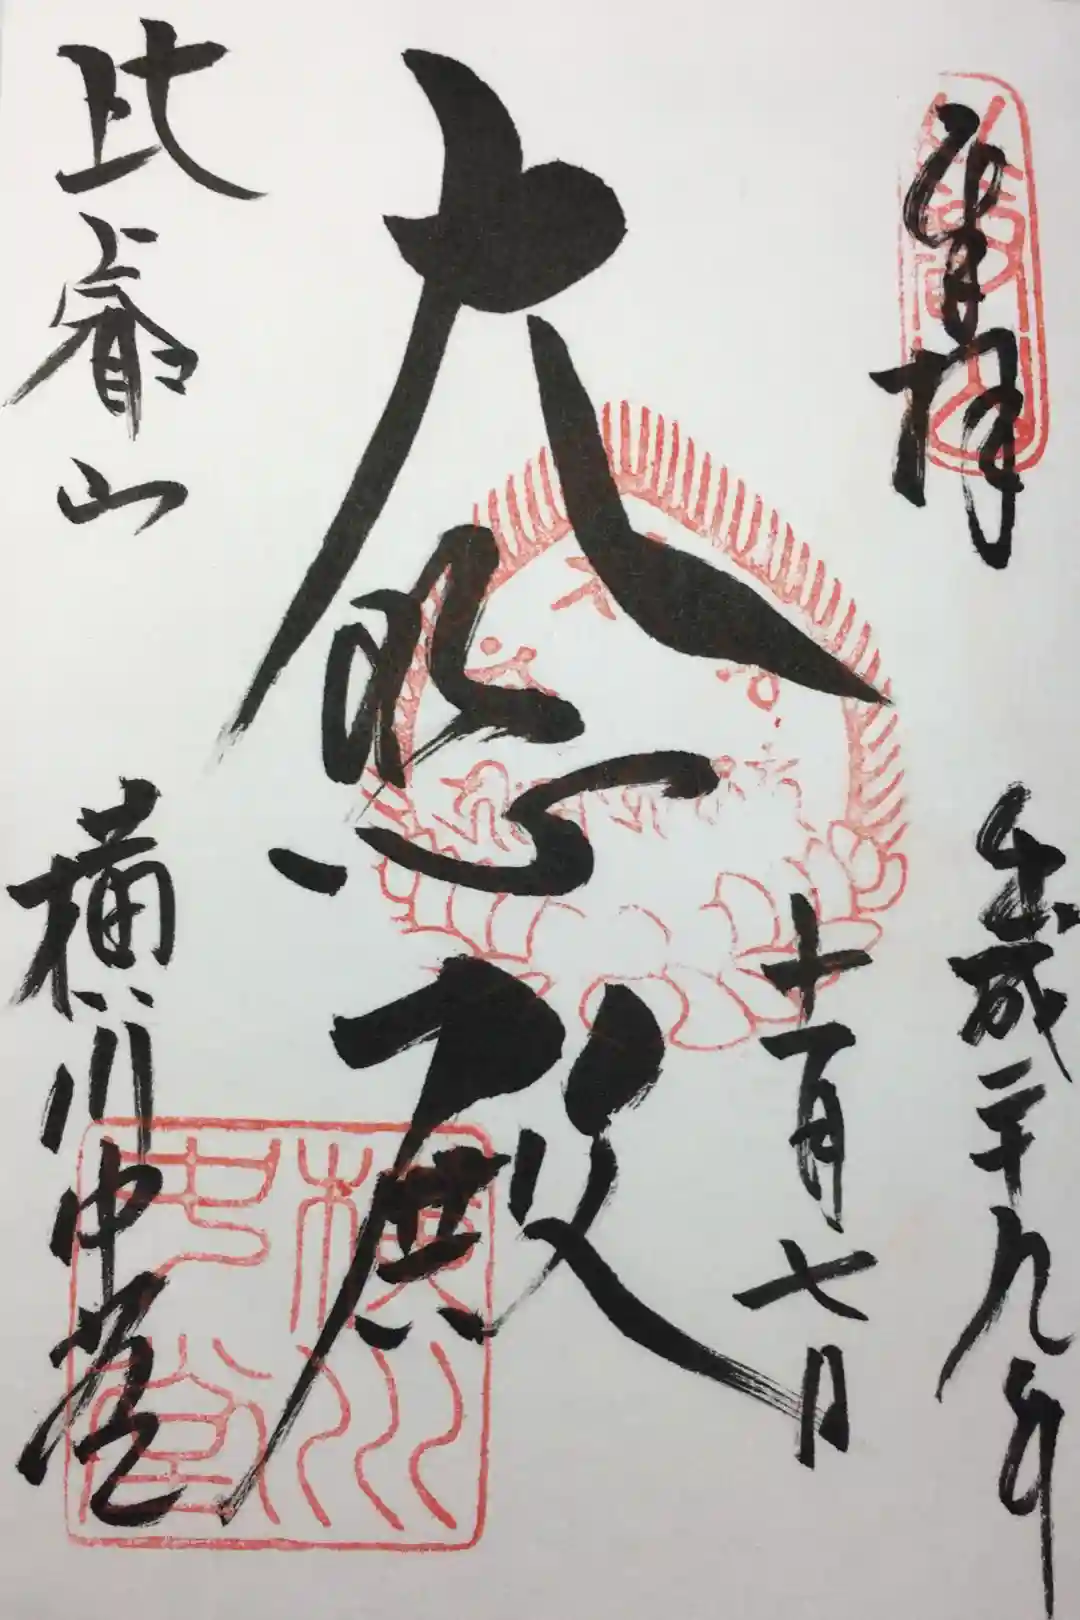 奉拝
平成二十九年
十一月七日
大悲殿
比叡山
横川中堂
横川中堂